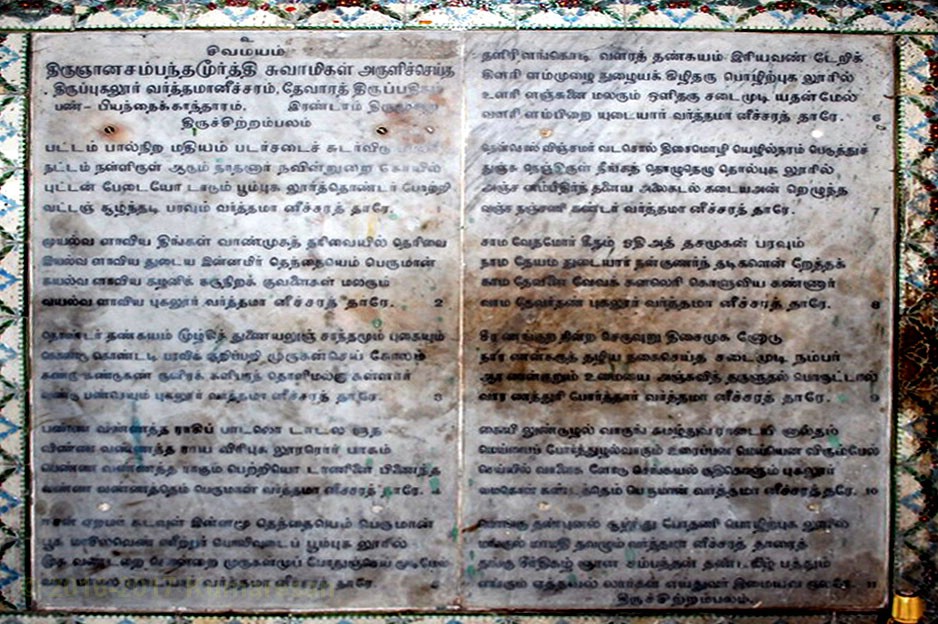 உ
சிவமயம்
திருஞானசம்பந்தமூர்த்தி சுவாமிகள் அருளிச்செய்த
திருப்புகலூர் வர்த்தமானீச்சரம், தேவாரத் திருப்பதிகம்
பண்- பியந்தைக்காந்தாரம். இரண்டாம்
திருச்சிற்றம்பலம்
பட்டம் பால்நிற மதியம் படர்சடைச் சுடர்விடு
நட்டம் நள்ளிருள் ஆடும் நாதனார் நவின்றுறை கோயில்
புட்டன் பேடையோ டாடும் பூம்புக லூர்த்தொண்டர் போற்றி
வட்டஞ் சூழ்ந்தடி பரவும் வர்த்தமா னீச்சரத் தாரே.
முயல்வ ளாவிய திங்கள் வாண்முகத் தரிவையில் தெரிவை
இயல்வ ளாவிய துடைய இன்னமிர் தெந்தையெம் பெருமான்
கயல்வ ளாவிய கழனிக் கருநிறக் குவளைகள் மலரும்
வயல்வ ளாவிய புகலூர் வர்த்தமா னீச்சரத் தாரே. 2
தொண்டர் தண்கயம் மூழ்கித் துணையலுஞ் சாந்தமும் புகையும்
கொண்டு கொண்டடி பரவிக் குறிப்பறி முருகன்செய் கோலம்
கண்டு கண்டுகண் குளிரக் களிபரந் தொளிமல்கு கள்ளார்
வண்டு பண்செயும் புகலூர் வர்த்தமா னீச்சரத் தாரே. 3
பண்ண வண்ணத்த ராகிப் பாடலொ டாடல
விண்ண வண்ணத்த ராய விரிபுக லூரரொர் பாகம்
பெண்ண வண்ணத்த ராகும் பெற்றியொ டாணிணை பிணைந்த
வண்ண வண்ணத்தெம் பெருமான் வர்த்தமா னீச்சரத் தாரே. 4
ஈசன் ஏறமர் கடவுள் இன்னமு தெந்தையெம் பெருமான்
பூசு மாசில்வெண் ணீற்றர் பொலிவுடைப் பூம்புக லூரில்
மூசு வண்டறை கொன்றை முருகன்முப் போதுஞ்செய் முடிமேல்
வர்த்தமா னீச்சரத் தாரே.
தளிரி ளங்கொடி வளரத் தண்கயம் இரியவண் டேறிக்
கிளரி ளம்முழை நுழையக் கிழிதரு பொழிற்புக லூரில்
உளரி ளஞ்சுனை மலரும் ஒளிதரு சடைமுடி யதன்மேல்
வளரி ளம்பிறை யுடையார் வர்த்தமா னீச்சரத் தாரே. 6
தென்சொல் விஞ்சமர் வடசொல் திசைமொழி யெழில்நரம் பெடுத்துத்
துஞ்சு நெஞ்சிருள் நீங்கத் தொழுதெழு தொல்புக லூரில்
அஞ்ச னம்பிதிர்ந் தனைய அலைகடல் கடையஅன் றெழுந்த
வஞ்ச நஞ்சணி கண்டர் வர்த்தமா னீச்சரத் தாரே. 7
சாம வேதமோர் கீதம் ஓதிஅத் தசமுகன் பரவும்
நாம தேயம துடையார் நன்குணர்ந் தடிகளென் றேத்தக்
காம தேவனை வேவக் கனலெரி கொளுவிய கண்ணார்
வாம தேவர்தண் புகலூர் வர்த்தமா னீச்சரத் தாரே. 8
சீர ணங்குற நின்ற செருவுறு திசைமுக னோடு
நார ணன்கருத் தழிய நகைசெய்த சடைமுடி நம்பர்
ஆர ணங்குறும் உமையை அஞ்சுவித் தருளுதல் பொருட்டால்
வார ணத்துரி போர்த்தார் வர்த்தமா னீச்சரத் தாரே. 9
கையி லுண்டுழல் வாருங் கமழ்துவ ராடையி னால்தம்
மெய்யைப் போர்த்துழல்வாரும் உரைப்பன மெய்யென விரும்பேல்
செய்யில் வாளைக ளோடு செங்கயல் குதிகொளும் புகலூர்
மைகொள் கண்டத்தெம் பெருமான் வர்த்தமா னீச்சரத் தாரே. 10
பொங்கு தண்புனல் சூழ்ந்து போதணி பொழிற்புக லூரில்
மங்குல் மாமதி தவழும் வர்த்தமா னீச்சரத் தாரைத்
தங்கு சீர்திகழ் ஞான சம்பந்தன் தண்டமிழ் பத்தும்
எங்கும் ஏத்தவல் லார்கள் எய்துவர் இமையவ ருலகே. 11
திருச்சிற்றம்பலம்.